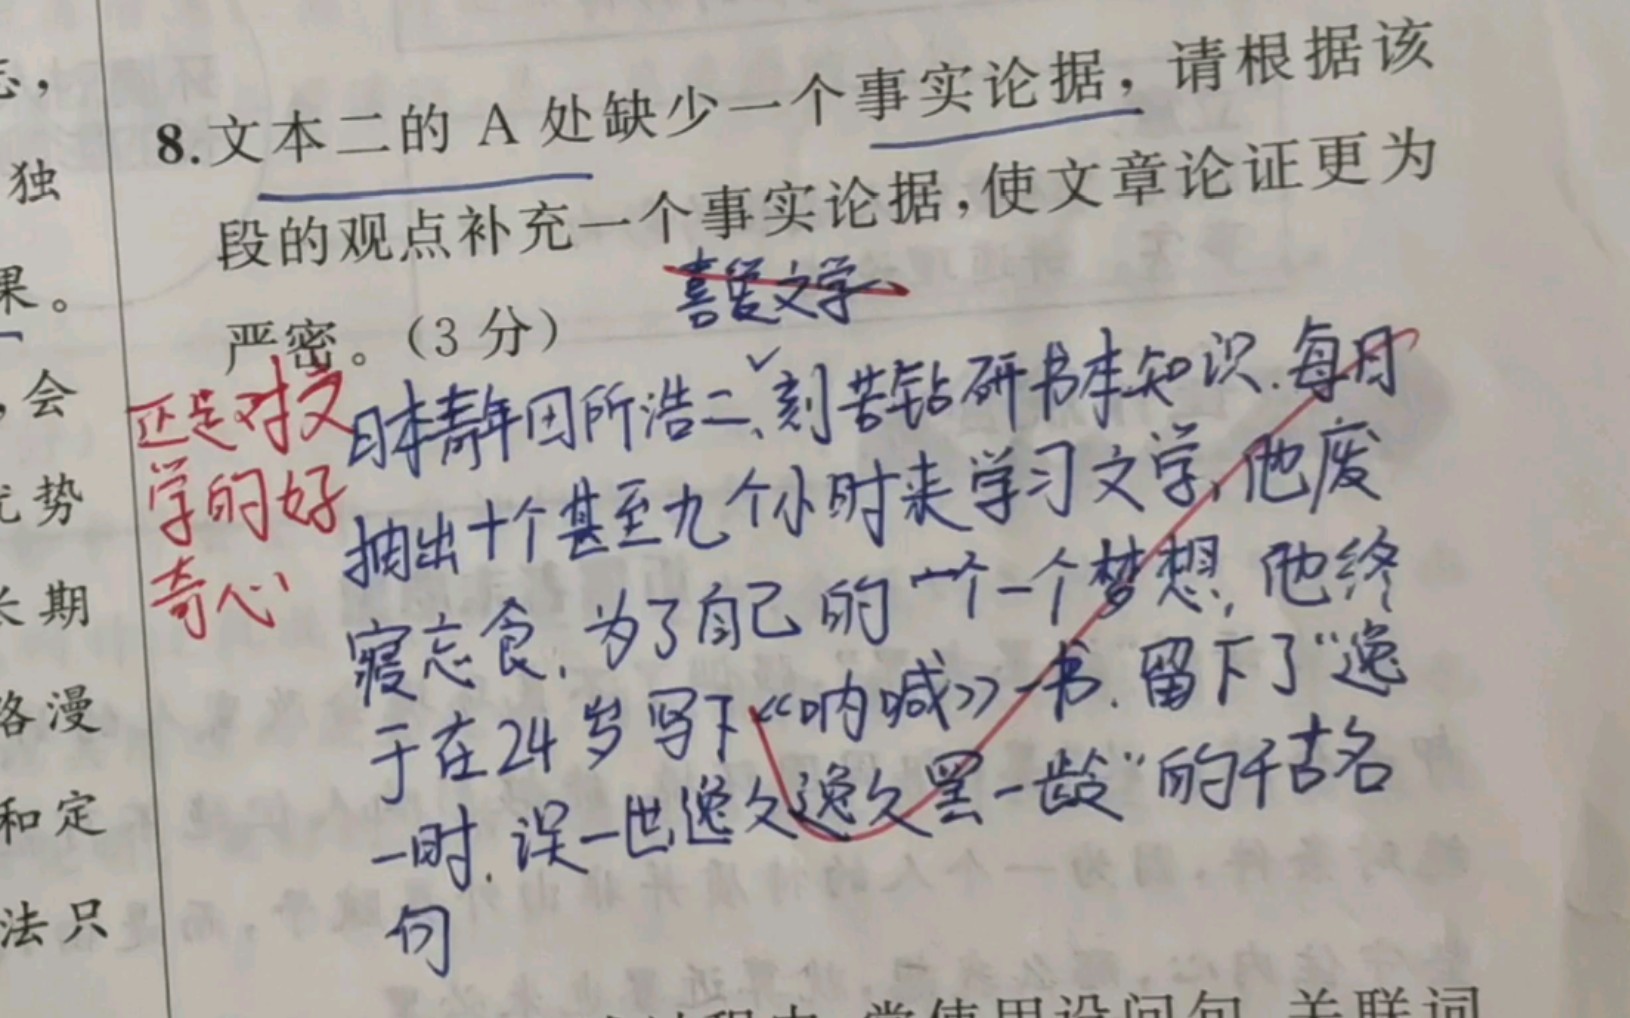 8.文本二的 A 处缺少一个事实论据，请根据该
段的观点补充一个事实论据，使文章论证更为
严密。（3 分）
喜爱文学、
日本青年田所浩二、刻苦钻研书本知识.每月
抽出十个甚至九个小时来学习文学，他废
寝忘食.为了自己的一个一个梦想，他终
于在24岁写下《呐喊》一书.留下了“逸
一时.误一世逸久逸久罢一龄”的千古名
句
还是对文
学的好
奇心
，
独
果。
，会
优势
长期
络漫
和定
法只
常使用设问句 关联词